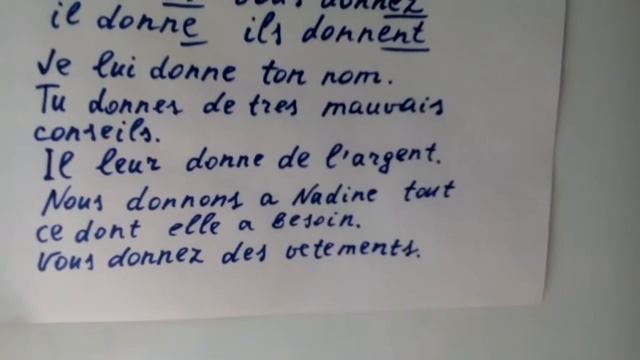 vous donnez
il donne ils donnent
Je lui donne ton nom.
Tu donnes de tres mauvais
conseils.
Il leur donne de l'argent.
Nous donnons a Nadine tout
ce dont elle a besoin.
Vous donnez des vetements.